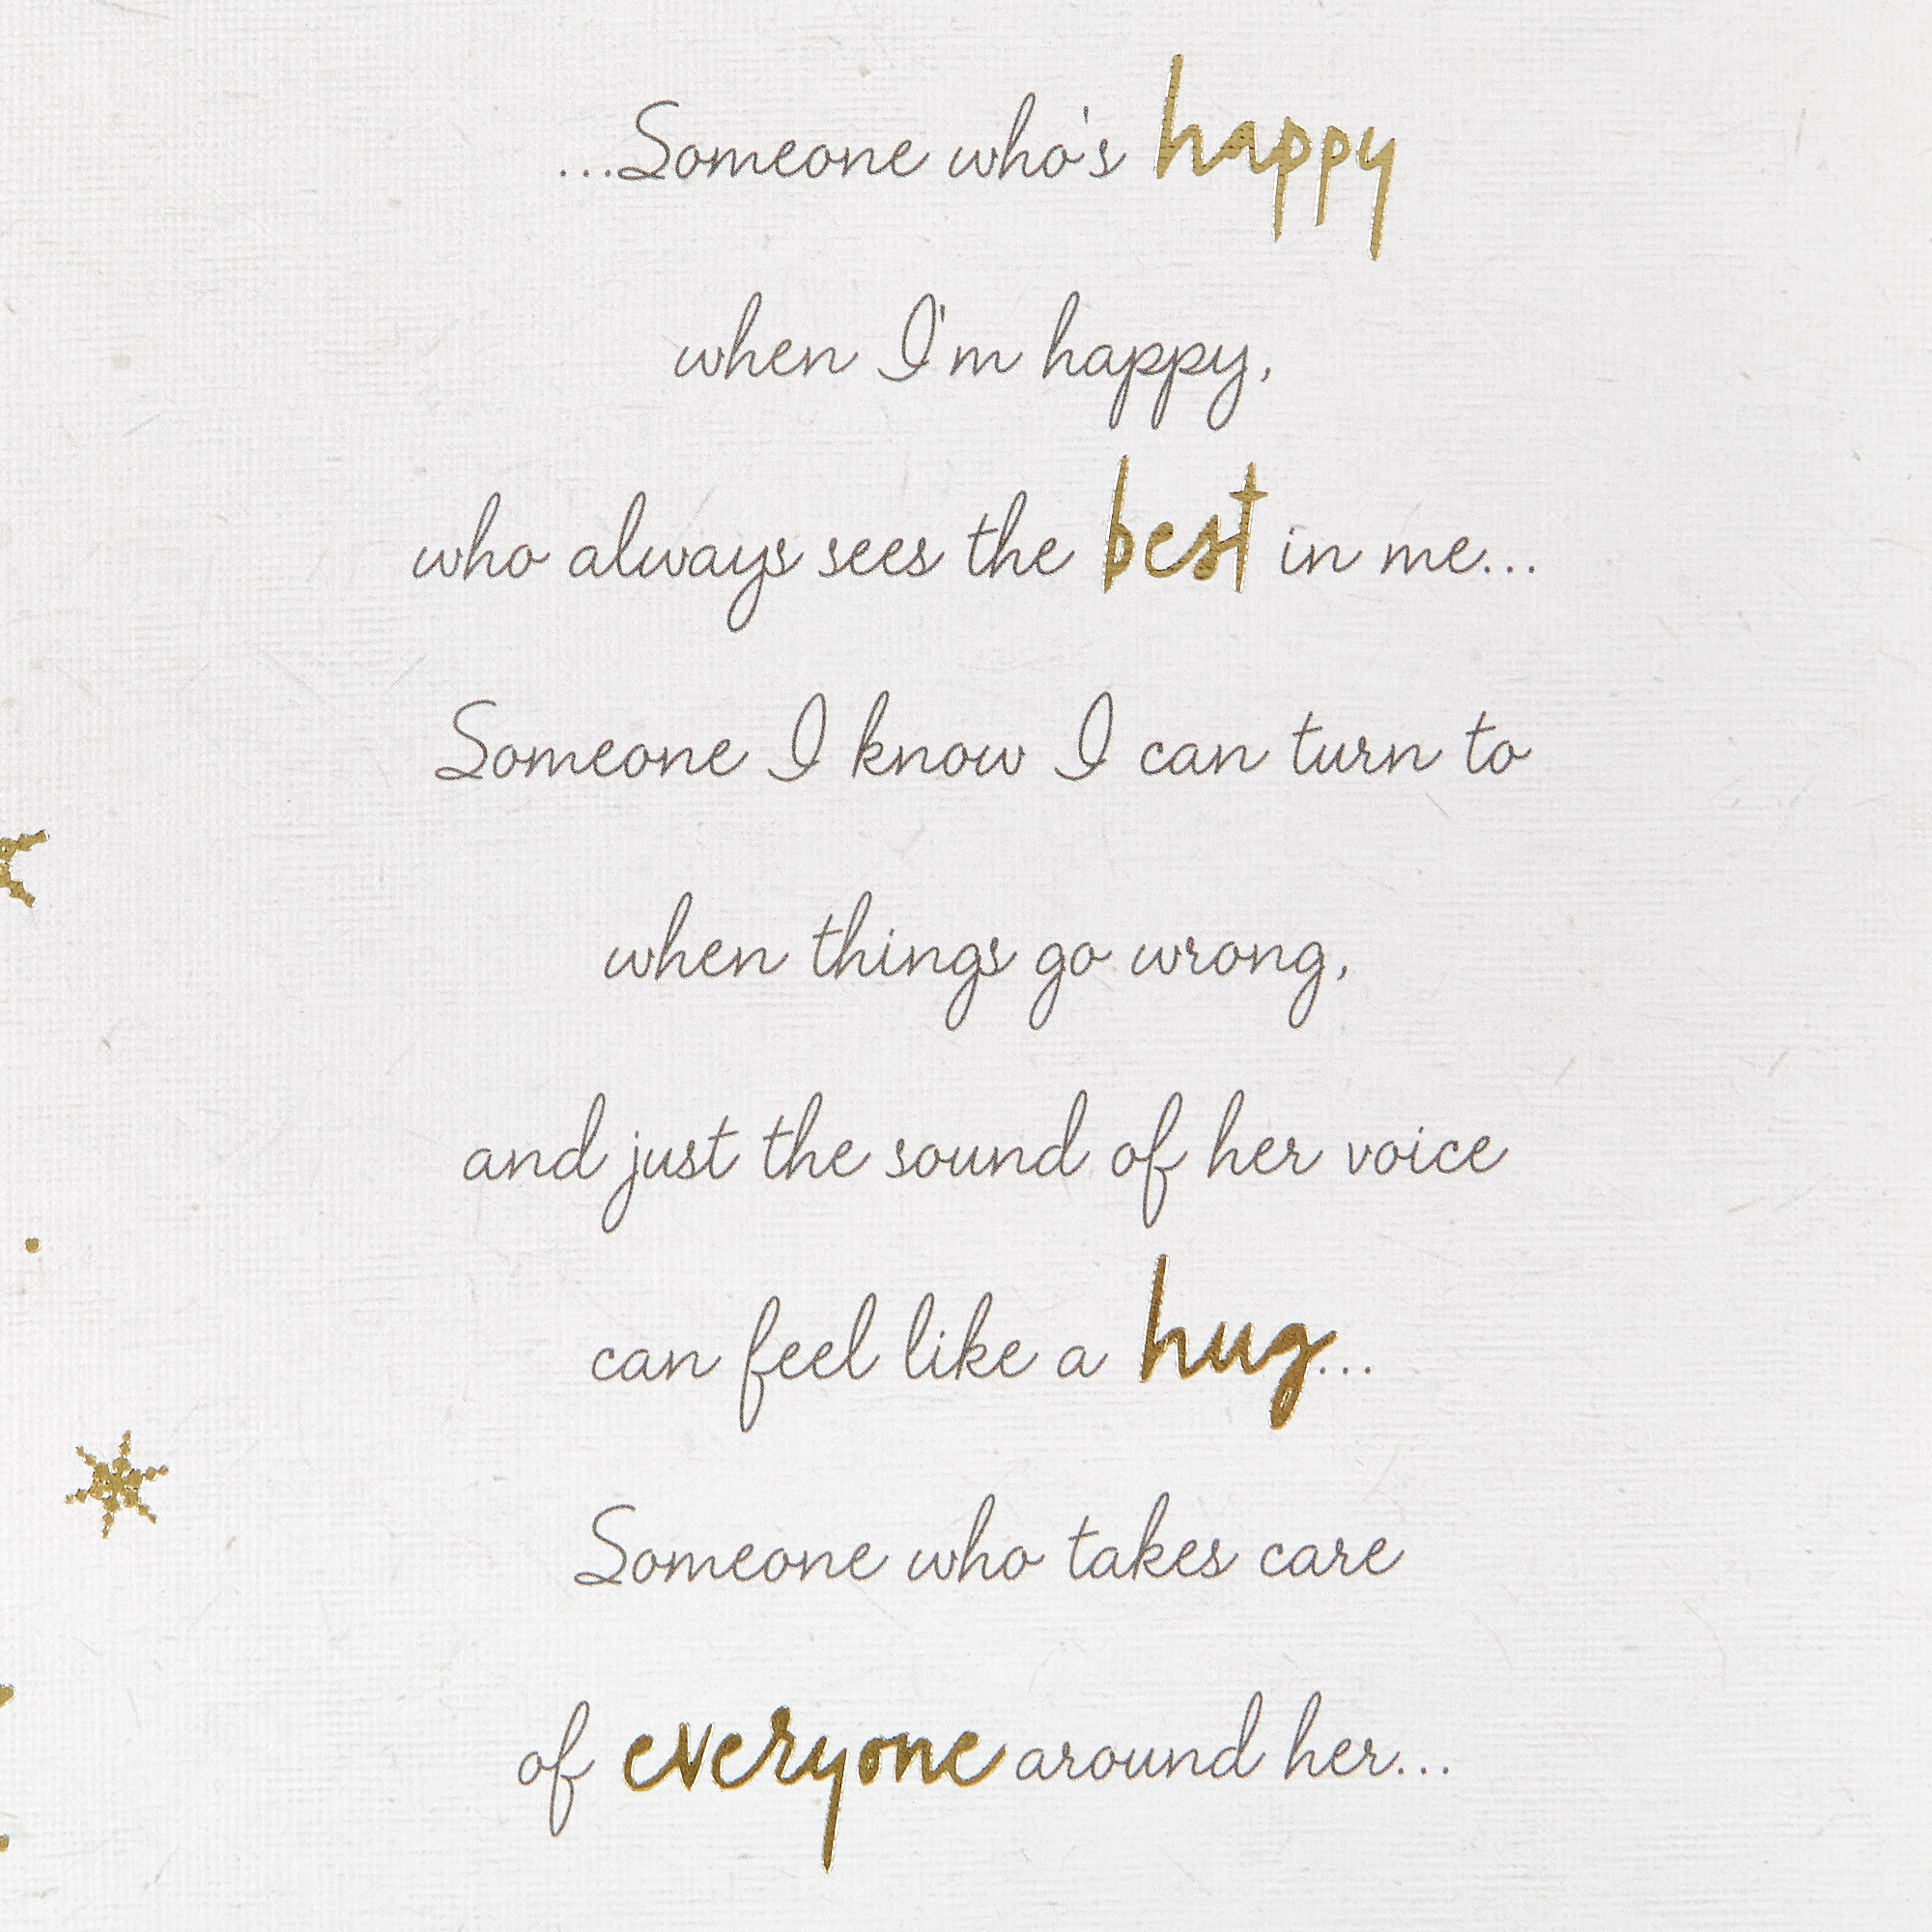 ...Someone who's happy
when I'm happy,
who always sees the best in me...
Someone I know I can turn to
when things go wrong,
and just the sound of her voice
can feel like a hug...
Someone who takes care
of everyone around her...